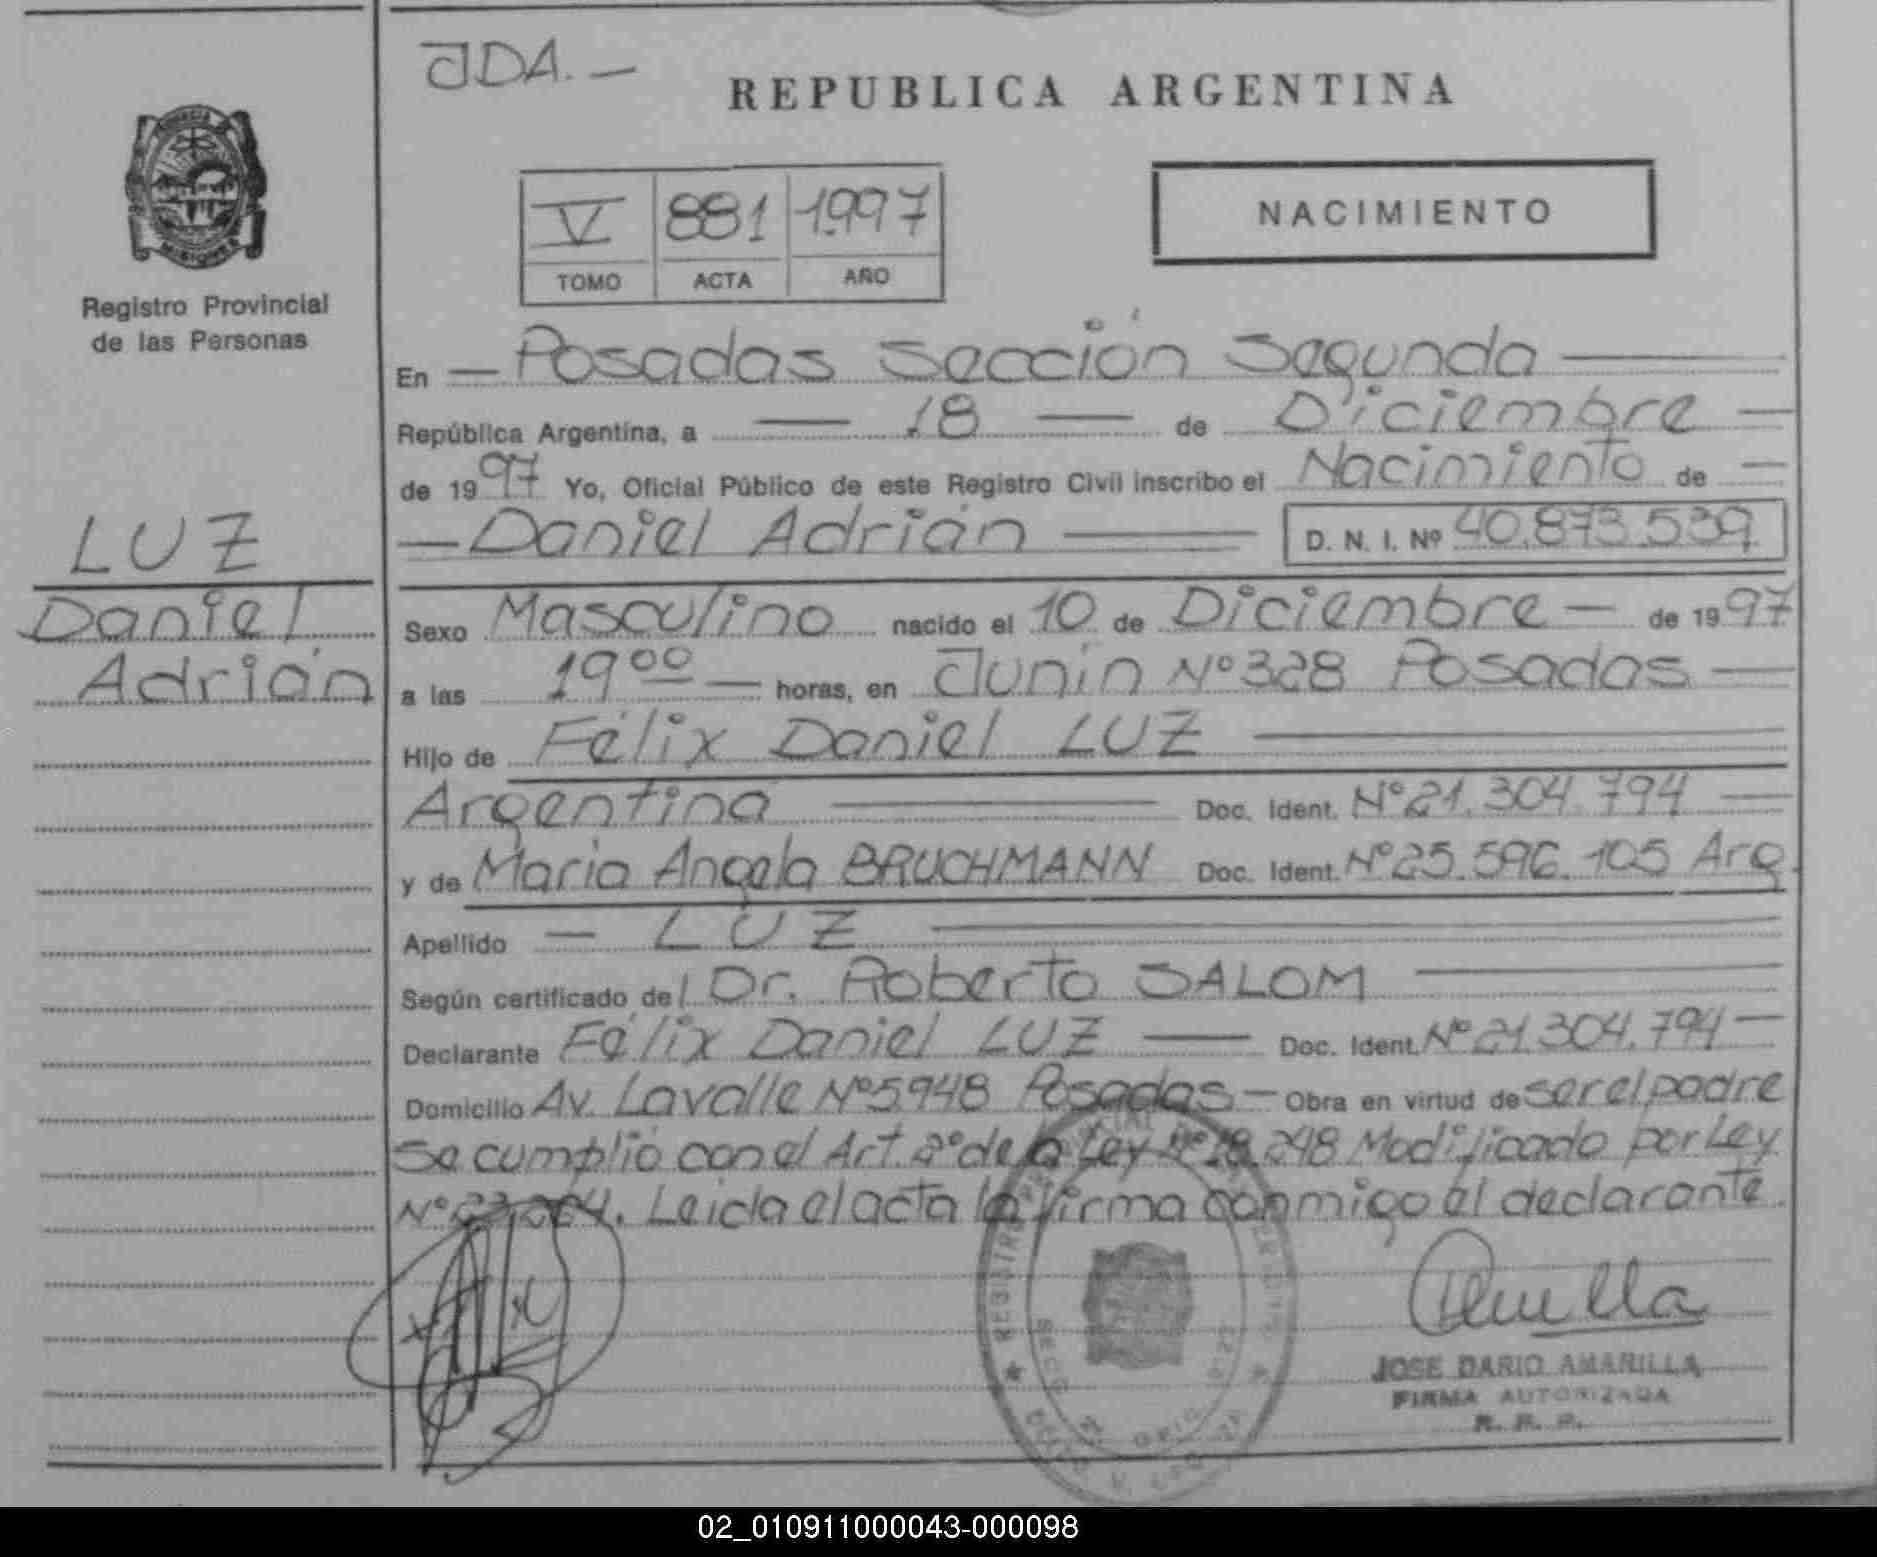 JDA.-
REPUBLICA ARGENTINA
V 881 1997
TOMO ACTA AÑO
NACIMIENTO
Registro Provincial
de las Personas
LUZ
Daniel
Adrián
En — Posadas Sección Segunda —
República Argentina, a — 18 — de Diciembre —
de 1997 Yo, Oficial Público de este Registro Civil inscribo el Nacimiento de —
— Daniel Adrián — D. N. I. Nº 40.873.539
Sexo Masculino nacido el 10 de Diciembre — de 1997
a las 19⁰⁰ — horas, en Junín Nº 328 Posadas —
Hijo de Félix Daniel LUZ —
Argentina — Doc. Ident. Nº 21.304.794 —
y de Maria Angela BRUCHMANN Doc. Ident. Nº 25.596.105 Arg.
Apellido — LUZ —
Según certificado del Dr. Roberto SALOM —
Declarante Félix Daniel LUZ — Doc. Ident. Nº 21.304.794 —
Domicilio Av. Lavalle Nº 5948 Posadas — Obra en virtud de ser el padre
Se cumplió con el Art. 2º de la Ley Nº 18.248 Modificado por Ley
Nº 23.264. Leida el acta la firma conmigo el declarante.
JOSE DARIO AMARILLA
FIRMA AUTORIZADA
R. P. P.
02_010911000043-000098